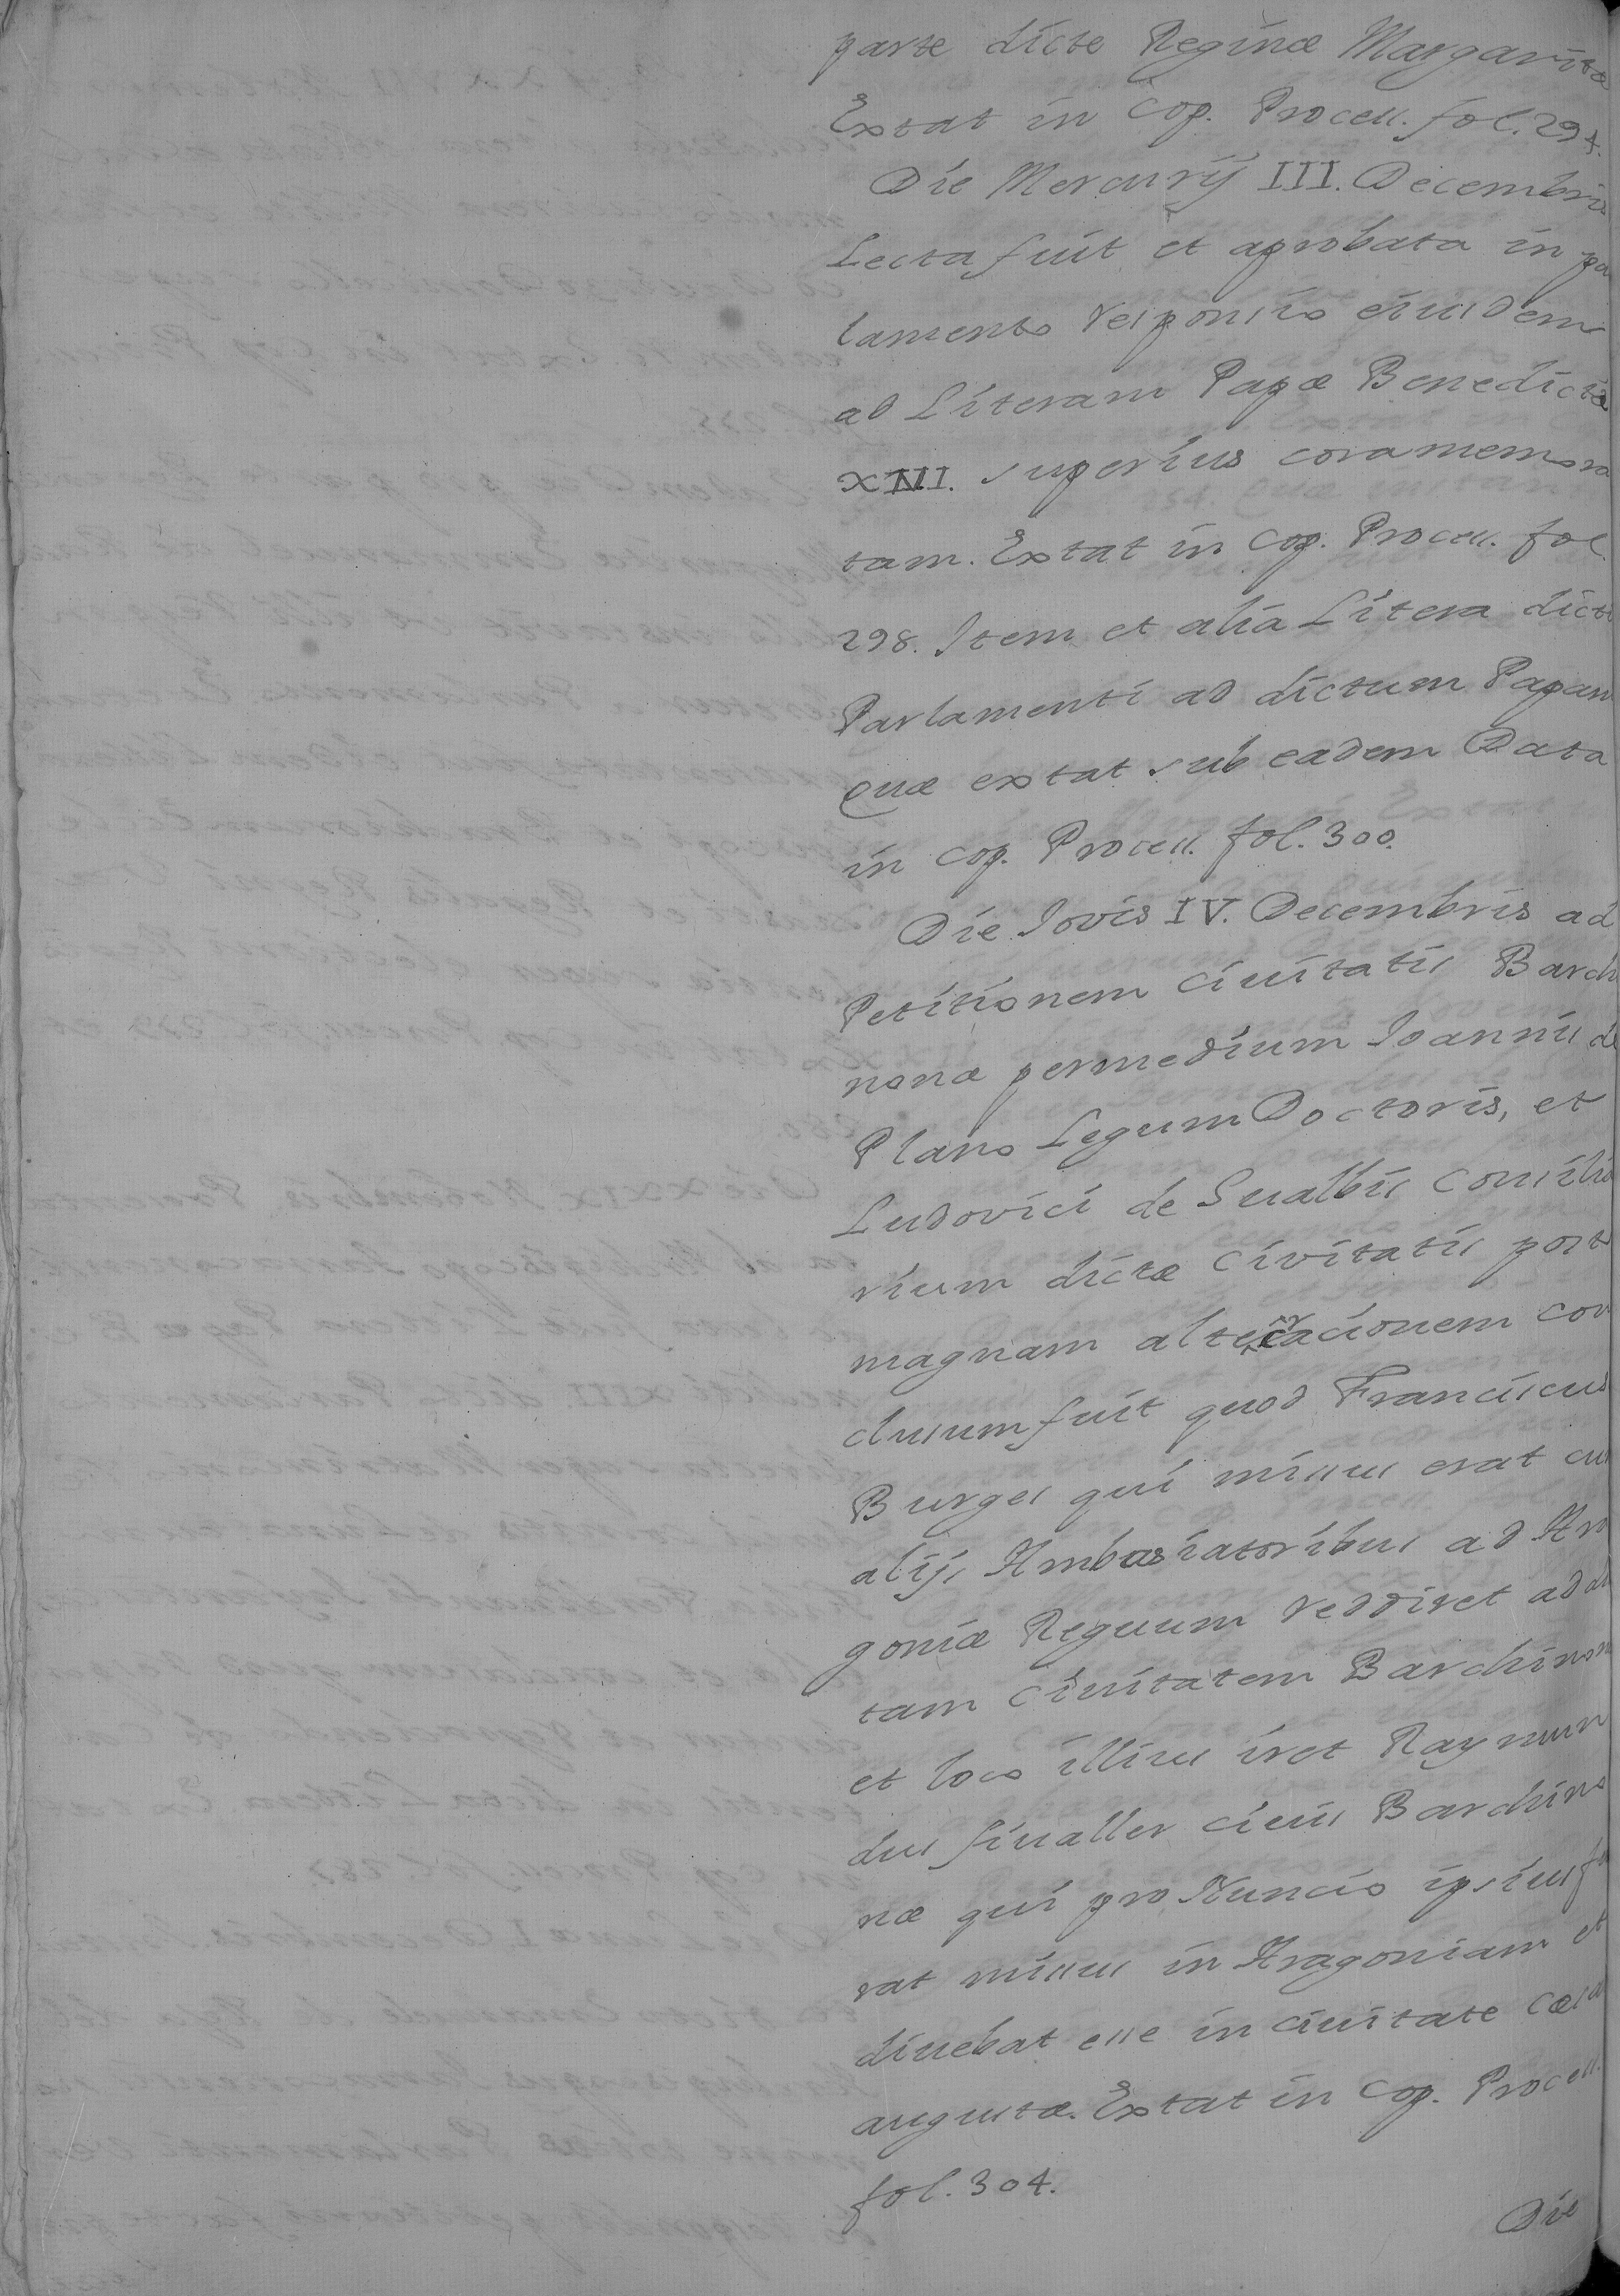 parte dicte Reginæ Margaritæ
Extat in Cop. Process. fol. 294.
Die Mercurÿ III. Decembris
Lecta fuit et aprobata in par
lamento responsio eiusdem
ad Literam Papæ Benedicti
XIII. superius coramemora
tam. Extat in Cop. Process. fol.
298. Item et alia Litera dicti
Parlamenti ad dictum Papam
quæ extat sub eadem Data
in Cop. Process. fol. 300.
Die Jovis IV. Decembris ad
Petitionem Ciuitatis Barchi
nonæ permedium Joannis de
Plano Legum Doctoris, et
Ludovici de Gualbis Consilia
rium dictæ Civitatis post
magnam altercacionem con
clusum fuit quod Franciscus
Burges qui missus erat cum
alijs Ambasiatoribus ad Ara
goniæ Regnum reddiret ad dic
tam Ciuitatem Barchinon
et loco illius iret Raymun
dus fiualler Ciuis Barchino
næ qui pro Nuncio ipsius fu
rat missus in Aragoniam et
dicebat esse in Ciuitate Cæsar
augustæ. Extat in Cop. Process.
fol. 304.
Die